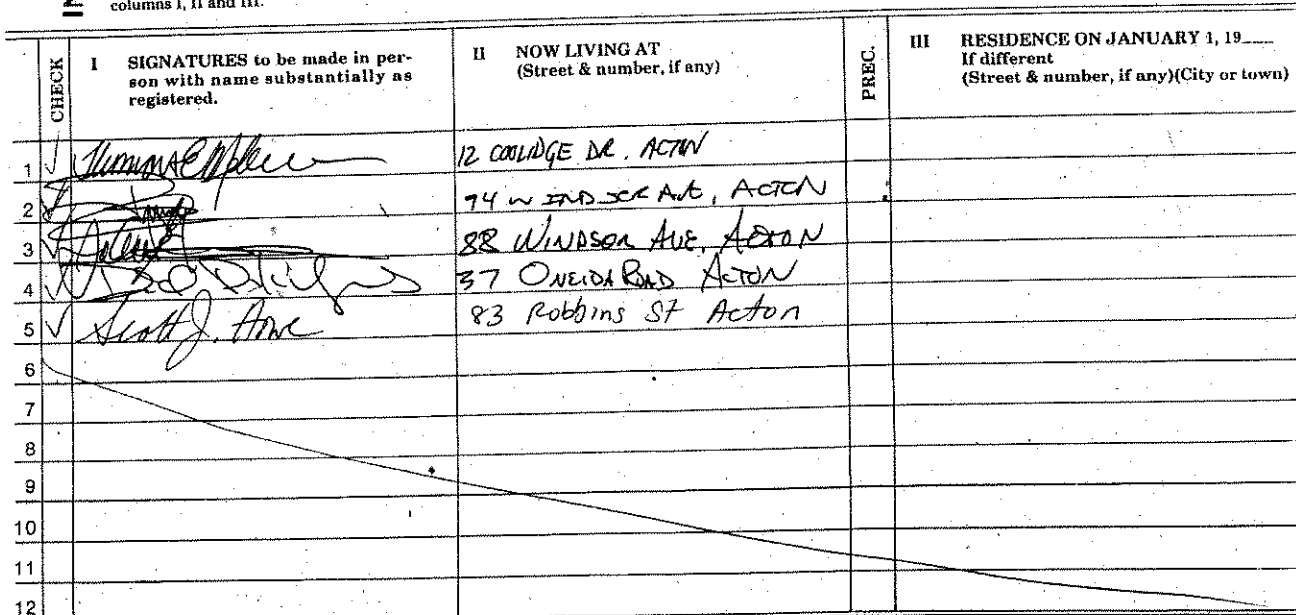 columns I, II and III.
CHECK
I SIGNATURES to be made in per-
son with name substantially as
registered.
II NOW LIVING AT
(Street & number, if any)
PREC.
III RESIDENCE ON JANUARY 1, 19___
If different
(Street & number, if any)(City or town)
1 ✓ 12 COOLIDGE DR. ACTON
2 ✓ 94 WINDSOR AVE, ACTON
3 ✓ 88 WINDSOR AVE, ACTON
4 ✓ 37 ONEIDA ROAD ACTON
5 ✓ Scott J. Howe 83 Robbins St Acton
6
7
8
9
10
11
12